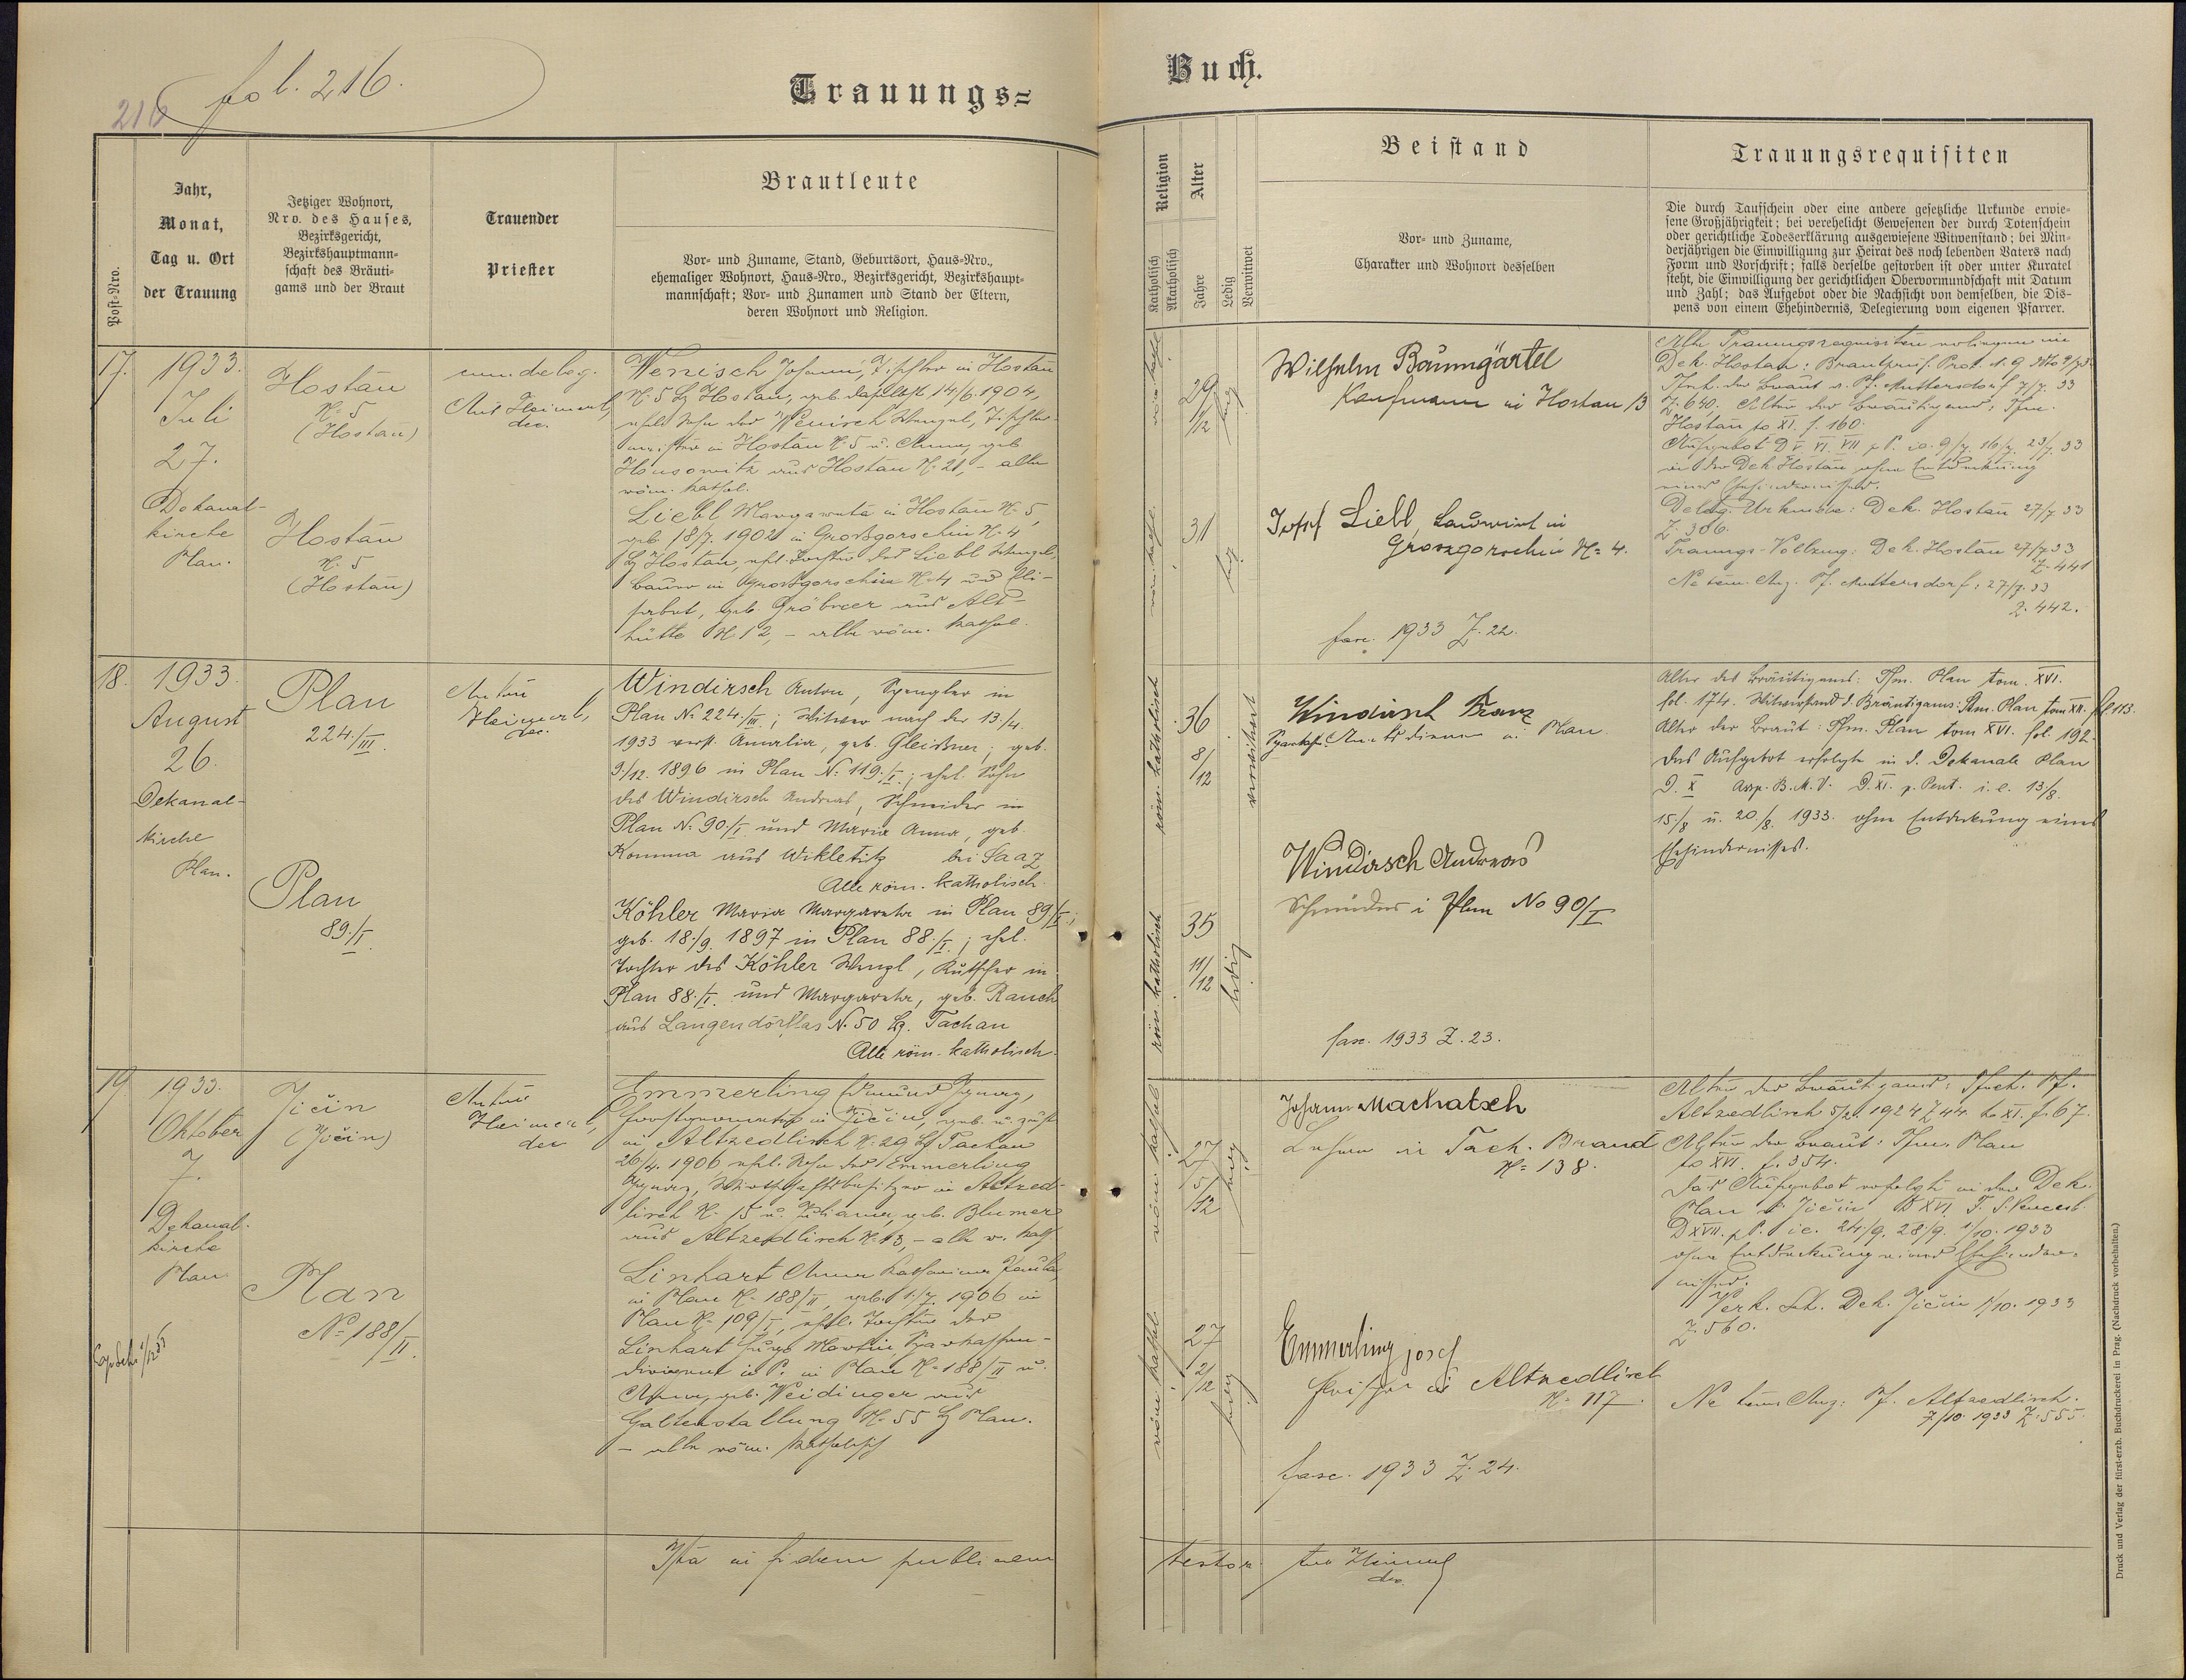 216
fol. 216.
Trauungs=
Buch.
Post=Nro.
Jahr,
Monat,
Tag u. Ort
der Trauung
Jetziger Wohnort,
Nro. des Hauses,
Bezirksgericht,
Bezirkshauptmann=
schaft des Bräuti=
gams und der Braut
Trauender
Priester
Brautleute
Vor= und Zuname, Stand, Geburtsort, Haus=Nro.,
ehemaliger Wohnort, Haus=Nro., Bezirksgericht, Bezirkshaupt=
mannschaft; Vor= und Zunamen und Stand der Eltern,
deren Wohnort und Religion.
Religion
Katholisch
Akatholisch
Alter
Jahre
Ledig
Verwitwet
Beistand
Vor= und Zuname,
Charakter und Wohnort desselben
Trauungsrequisiten
Die durch Taufschein oder eine andere gesetzliche Urkunde erwie=
sene Großjährigkeit; bei verehelicht Gewesenen der durch Totenschein
oder gerichtliche Todeserklärung ausgewiesene Witwenstand; bei Min=
derjährigen die Einwilligung zur Heirat des noch lebenden Vaters nach
Form und Vorschrift; falls derselbe gestorben ist oder unter Kuratel
steht, die Einwilligung der gerichtlichen Obervormundschaft mit Datum
und Zahl; das Aufgebot oder die Nachsicht von demselben, die Dis=
pens von einem Ehehindernis, Delegierung vom eigenen Pfarrer.
17.
1933.
Juli
27.
Dekanal-
kirche
Plan.
Hostau
N= 5
(Hostau)
Hostau
N= 5
(Hostau)
cum deleg.
Ant Heimerl,
dec.
Wenisch Johann, Tischler in Hostau
N= 5 Bz Hostau, geb. daselbst 14/6. 1904,
ehel. Sohn des Wenisch Wenzel, Tischler-
meister in Hostau N= 5 u. Anna, geb.
Housowitz aus Hostau N= 21, – alle
röm. kathol.
Liebl Margareta in Hostau N= 5,
geb. 18/7. 1902 in Grossgorschin N= 4
Bz Hostau, ehel. Tochter des Liebl Wenzel,
Bauer in Grossgorschin N= 4 und Eli-
sabet, geb. Gröbner aus Alt-
hütte N= 12, – alle röm. kathol.
röm. kathol.
29
1/12
ledig
röm. kathol.
31
ledig
Wilhelm Baumgärtel
Kaufmann in Hostau 13
Josef Liebl, Landwirt in
Grossgorschin N= 4.
fasc. 1933 Z. 22.
Alle Trauungsrequisiten erliegen im
Dek. Hostau: Brautprüf. Prot. d. d. dto 9/7 33.
Tfsch. der Braut v. Pf. Muttersdorf 7/7. 33
Z. 640. Alter des Bräutigams: Tfm.
Hostau to XI. f. 160.
Aufgebot D V. VI. VII p P. i.e. 9/7. 16/7. 23/7. 33
in der Dek. Hostau ohne Entdeckung
eines Ehehindernisses.
Deleg. Urkunde: Dek. Hostau 27/7 33
Z. 306.
Trauungs-Vollzug: Dek. Hostau 27/7 33
Z. 441
Ne tem. Anz. Pf. Muttersdorf: 27/7. 33
Z. 442.
18.
1933.
August
26.
Dekanal-
kirche
Plan.
Plan
224./III.
Plan
89./I.
Anton
Heimerl,
dec.
Windirsch Anton, Spengler in
Plan N= 224./III.; Witwer nach der 13./4.
1933 verst. Amalia, geb. Gleißner; geb.
9./12. 1896 in Plan N= 119./I.; ehel. Sohn
des Windirsch Andreas, Schneider in
Plan N= 90./I. und Maria Anna, geb.
Komma aus Wikletitz bei Saaz
Alle röm. katholisch.
Köhler Maria Margareta in Plan 89./I.;
geb. 18./9. 1897 in Plan 88./I.; ehel.
Tochter des Köhler Wenzl, Kutscher in
Plan 88./I. und Margareta, geb. Rauch
aus Langendörflas N. 50 Bz. Tachau
Alle röm. katholisch.
röm. katholisch
36
8/12
verwitwet
röm. katholisch
35
11/12
ledig
Windirsch Franz
Sparkassen Amtsdiener in Plan
Windirsch Andreas
Schneider in Plan No 90/I
fasc. 1933 Z. 23.
Alter des Bräutigams: Tfm. Plan tom. XVI.
fol. 174. Witwerstand d. Bräutigams: Stm. Plan tom XII. fol 113.
Alter der Braut: Tfm. Plan tom XVI. fol. 192.
Das Aufgebot erfolgte in d. Dekanale Plan
D. X Assp. B. M. V. D. XI. p. Pent. i. e. 13/8.
15./8 u. 20./8. 1933. ohne Entdeckung eines
Ehehindernisses.
19
1933.
Oktober
7.
Dekanal-
kirche
Plan
Jičín
(Jičín)
Plan
N= 188/II.
Anton
Heimerl,
dec
Emmerling Edmund Ignaz,
in Jičín, geb. u. zust.
in Altzedlisch N= 29 Bz Tachau
26/4. 1906 ehel. Sohn des Emmerling
Ignaz, Wirtschaftsbesitzer in Altzed-
lisch N= 15 u. Juliana, geb. Blumer
aus Altzedlisch N= 13, – alle r. kath.
Linhart Anna Katharina Paula,
in Plan N= 188/II, geb. 1/7. 1906 in
Plan N= 109/I, ehel. Tochter des
Linhart Hugo Martin, Sparkassen-
dirigent i. P. in Plan N= 188/II u.
Anna, geb. Weidinger aus
Galtenstallung N= 55 Bz Plan.
– alle röm. katholisch
röm. kathol
27
5/12
ledig
röm. kathol
27
2/12
ledig
Johann Machatsch
Lehrer in Tach. Brand
N= 138.
Emmerling Josef
Fleischer in Altzedlisch
N= 117.
fasc. 1933 Z. 24.
Alter des Bräutigams: Tfsch. Pf.
Altzedlisch 5/2. 1924 Z 44. to XI. f. 67.
Alter der Braut: Tfm. Plan
to XVI. f. 354.
Das Aufgebot erfolgte in der Dek.
Plan u. Jičín D XVI. F. S. Vencesl.
D XVII. p P. i.e. 24./9. 28/9. 1/10. 1933
ohne Entdeckung eines Ehehinder-
nisses.
Verk. Sch. Dek. Jičín 1/10. 1933
Z. 560.
Ne tem. Anz. Pf. Altzedlisch.
7/10. 1933 Z. 555.
Ita in fidem publicam
testor.
Ant Heimerl
dec.
Druck und Verlag der fürst-erzb. Buchdruckerei in Prag. (Nachdruck vorbehalten.)